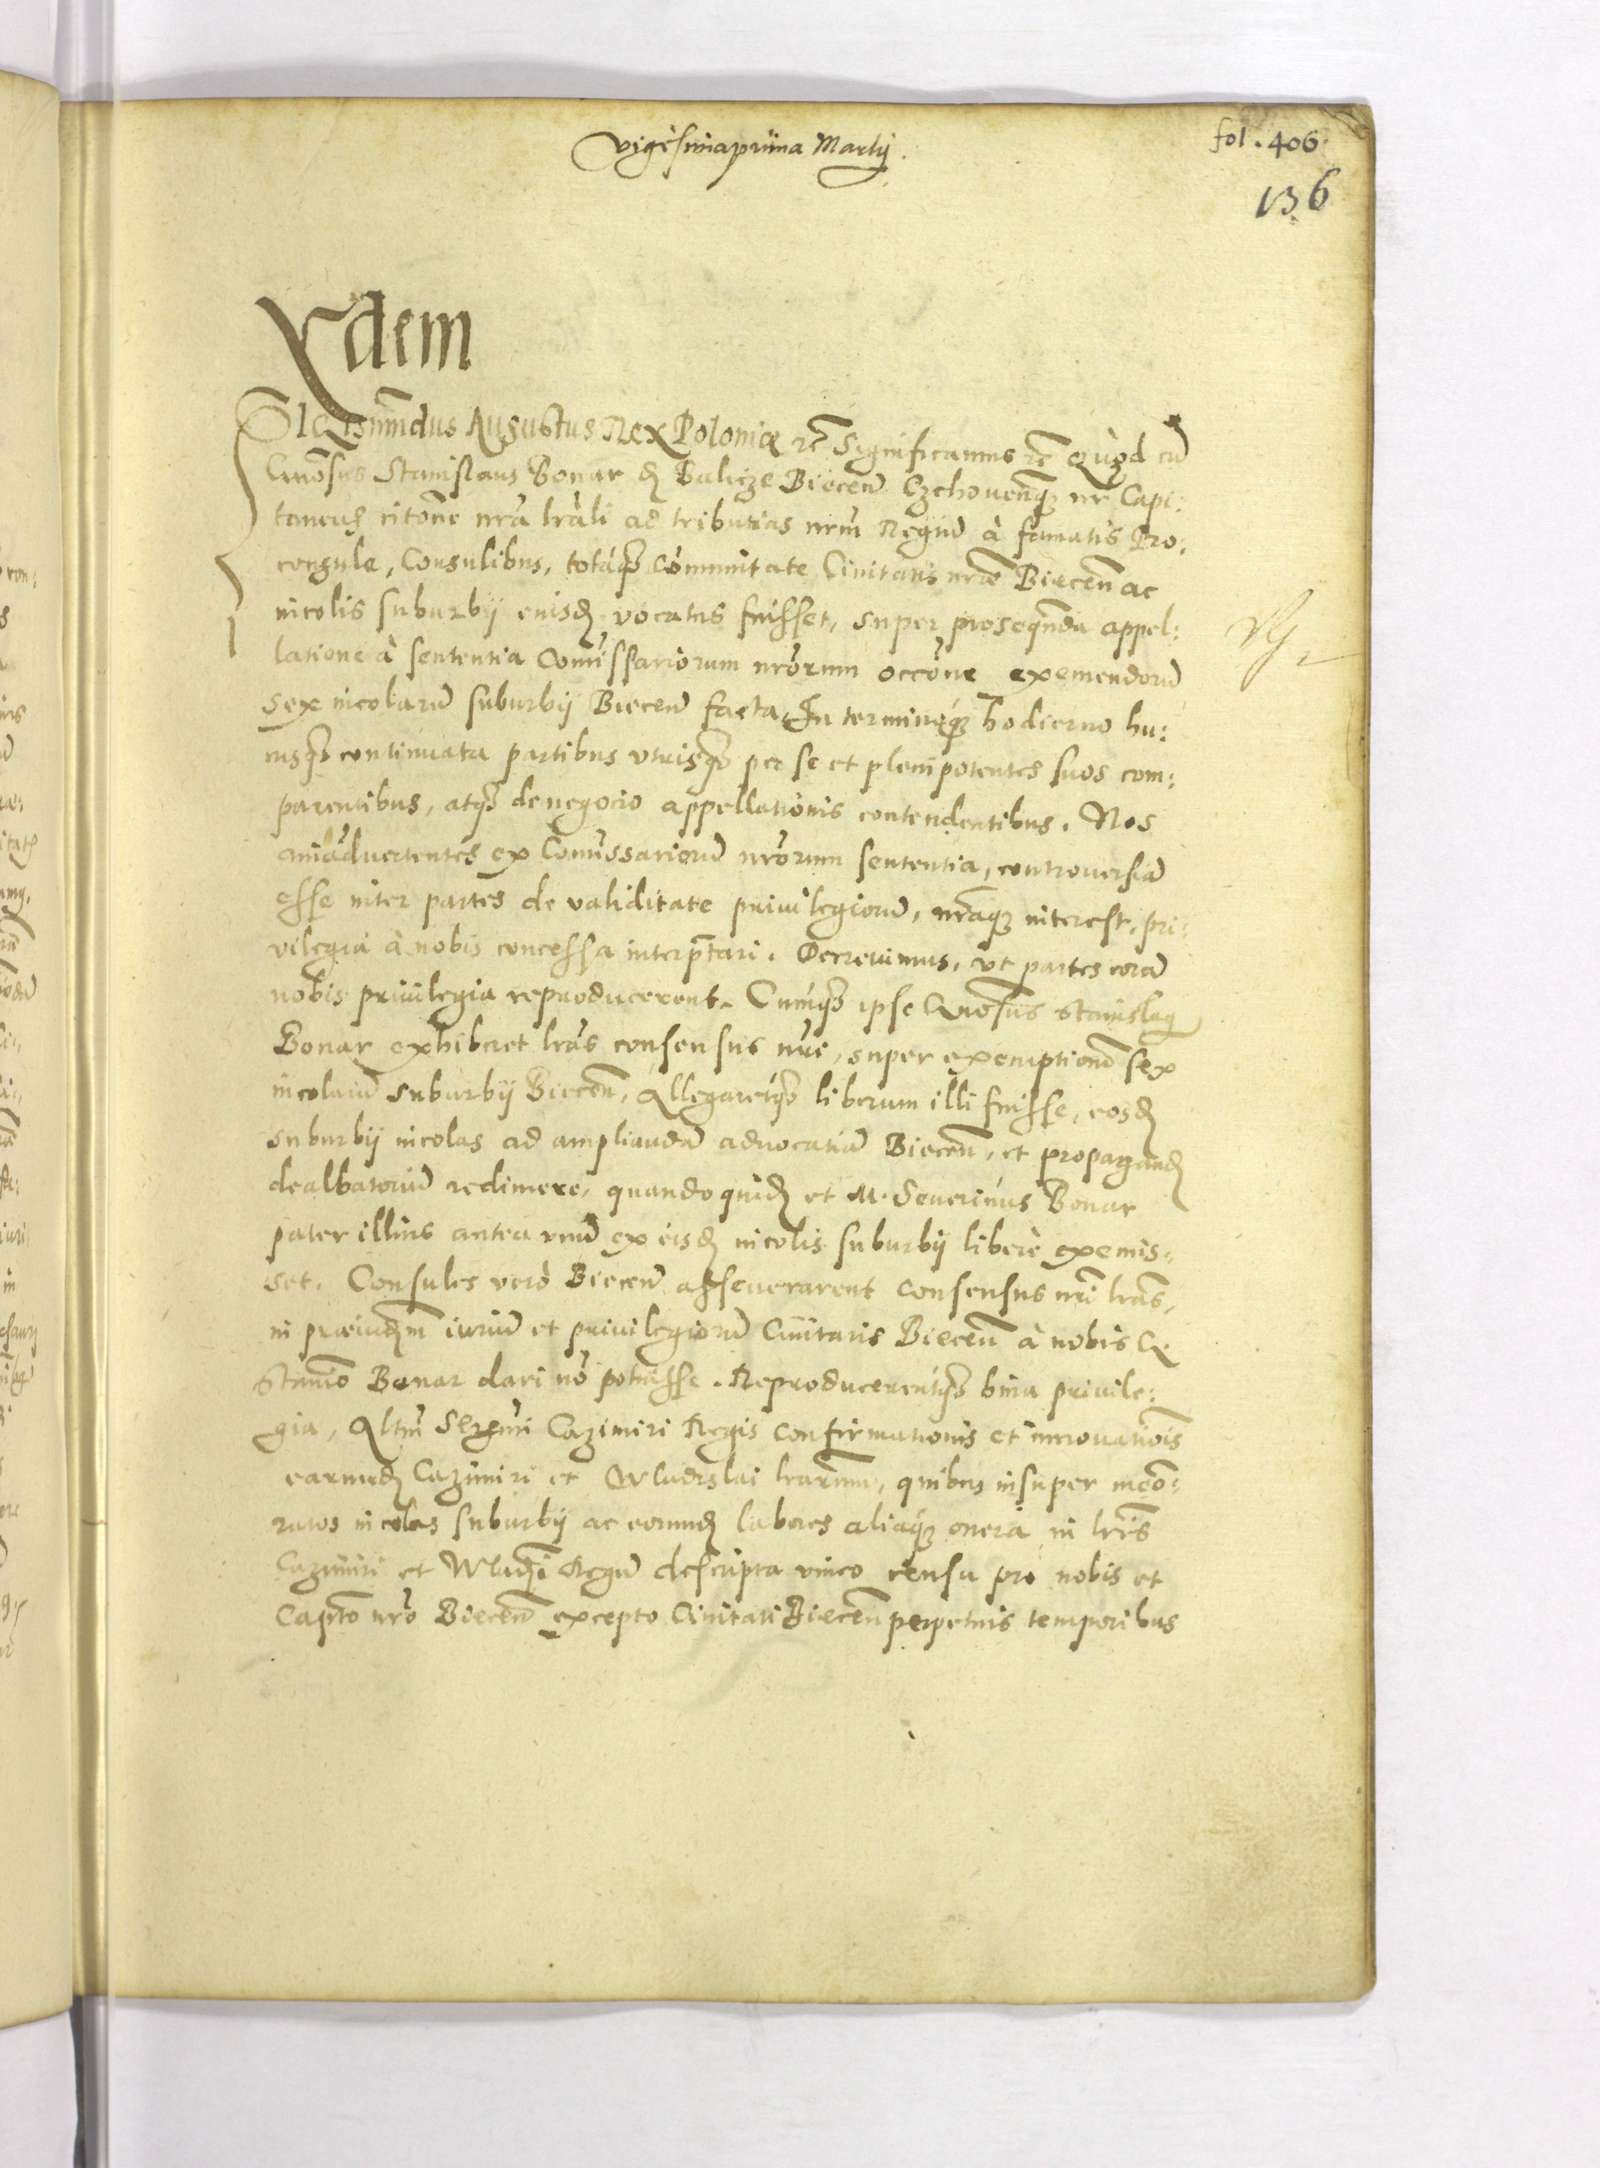 Vigesimaprima Martij.
fol. 406
136
Ydem
Sigismudus Augustus Rex Poloniæ rc Significamus rc Quod cu
Gnosus Stanislaus Bonar d Balicze Biecen Czchovenq nr Capi:
taneus citone nra lrali ad tributias nrm Regnu à famatis Pro:
consule, Consulibus, totaq Communitate Civitatis nræ Biecen ac
incolis suburbij eiusd vocatus fuisset, super prosequnda appel:
latione à sententia Comissariorum nrorum occone exemendoru
sex incolaru suburbij Biecen facta, In terminoq hodierno hu:
cusq continuata partibus utrisq per se et plenipotentes suos com:
parentibus, atq de negocio appellationis contendentibus. Nos
aniadvertentes ex Comissarioru nrorum sententia, controversia
esse inter partes de validitate privilegioru, nraq interest, pri:
vilegia à nobis concessa interptari. Decrevimus, vt partes cora
nobis privilegia reproducerent. Cumq ipse Gnosus Stanislaq
Bonar exhiberet lras consensus nri, super exemptione sex
incolaru suburbij Biecen, Allegaretq liberum illi fuisse, eosd
suburbij incolas ad ampliandu advocatia Biecen, et propagand
dealbatoriu redimere, quandoquid et M. Severinus Bonar
pater illius antea vnu ex eisd incolis suburbij liberè exemis:
set. Consules verò Biecen asseverarent Consensus nri lras,
in præiudm iuriu et privilegioru Civitatis Biecen à nobis G.
Stanio Bonar dari no potuisse. Reproducerentq bina privile:
gia, Altm Sermi Cazimiri Regis confirmationis et innovatiois
earund Cazimiri et Wladislai lrarum, quibus insuper meo:
ratos incolas suburbij ac eorund labores aliaq onera in lris
Cazimiri et Wladi Regu descripta vnico censu pro nobis et
Capto nro Biecen excepto Civitati Biecen perpetuis temporibus